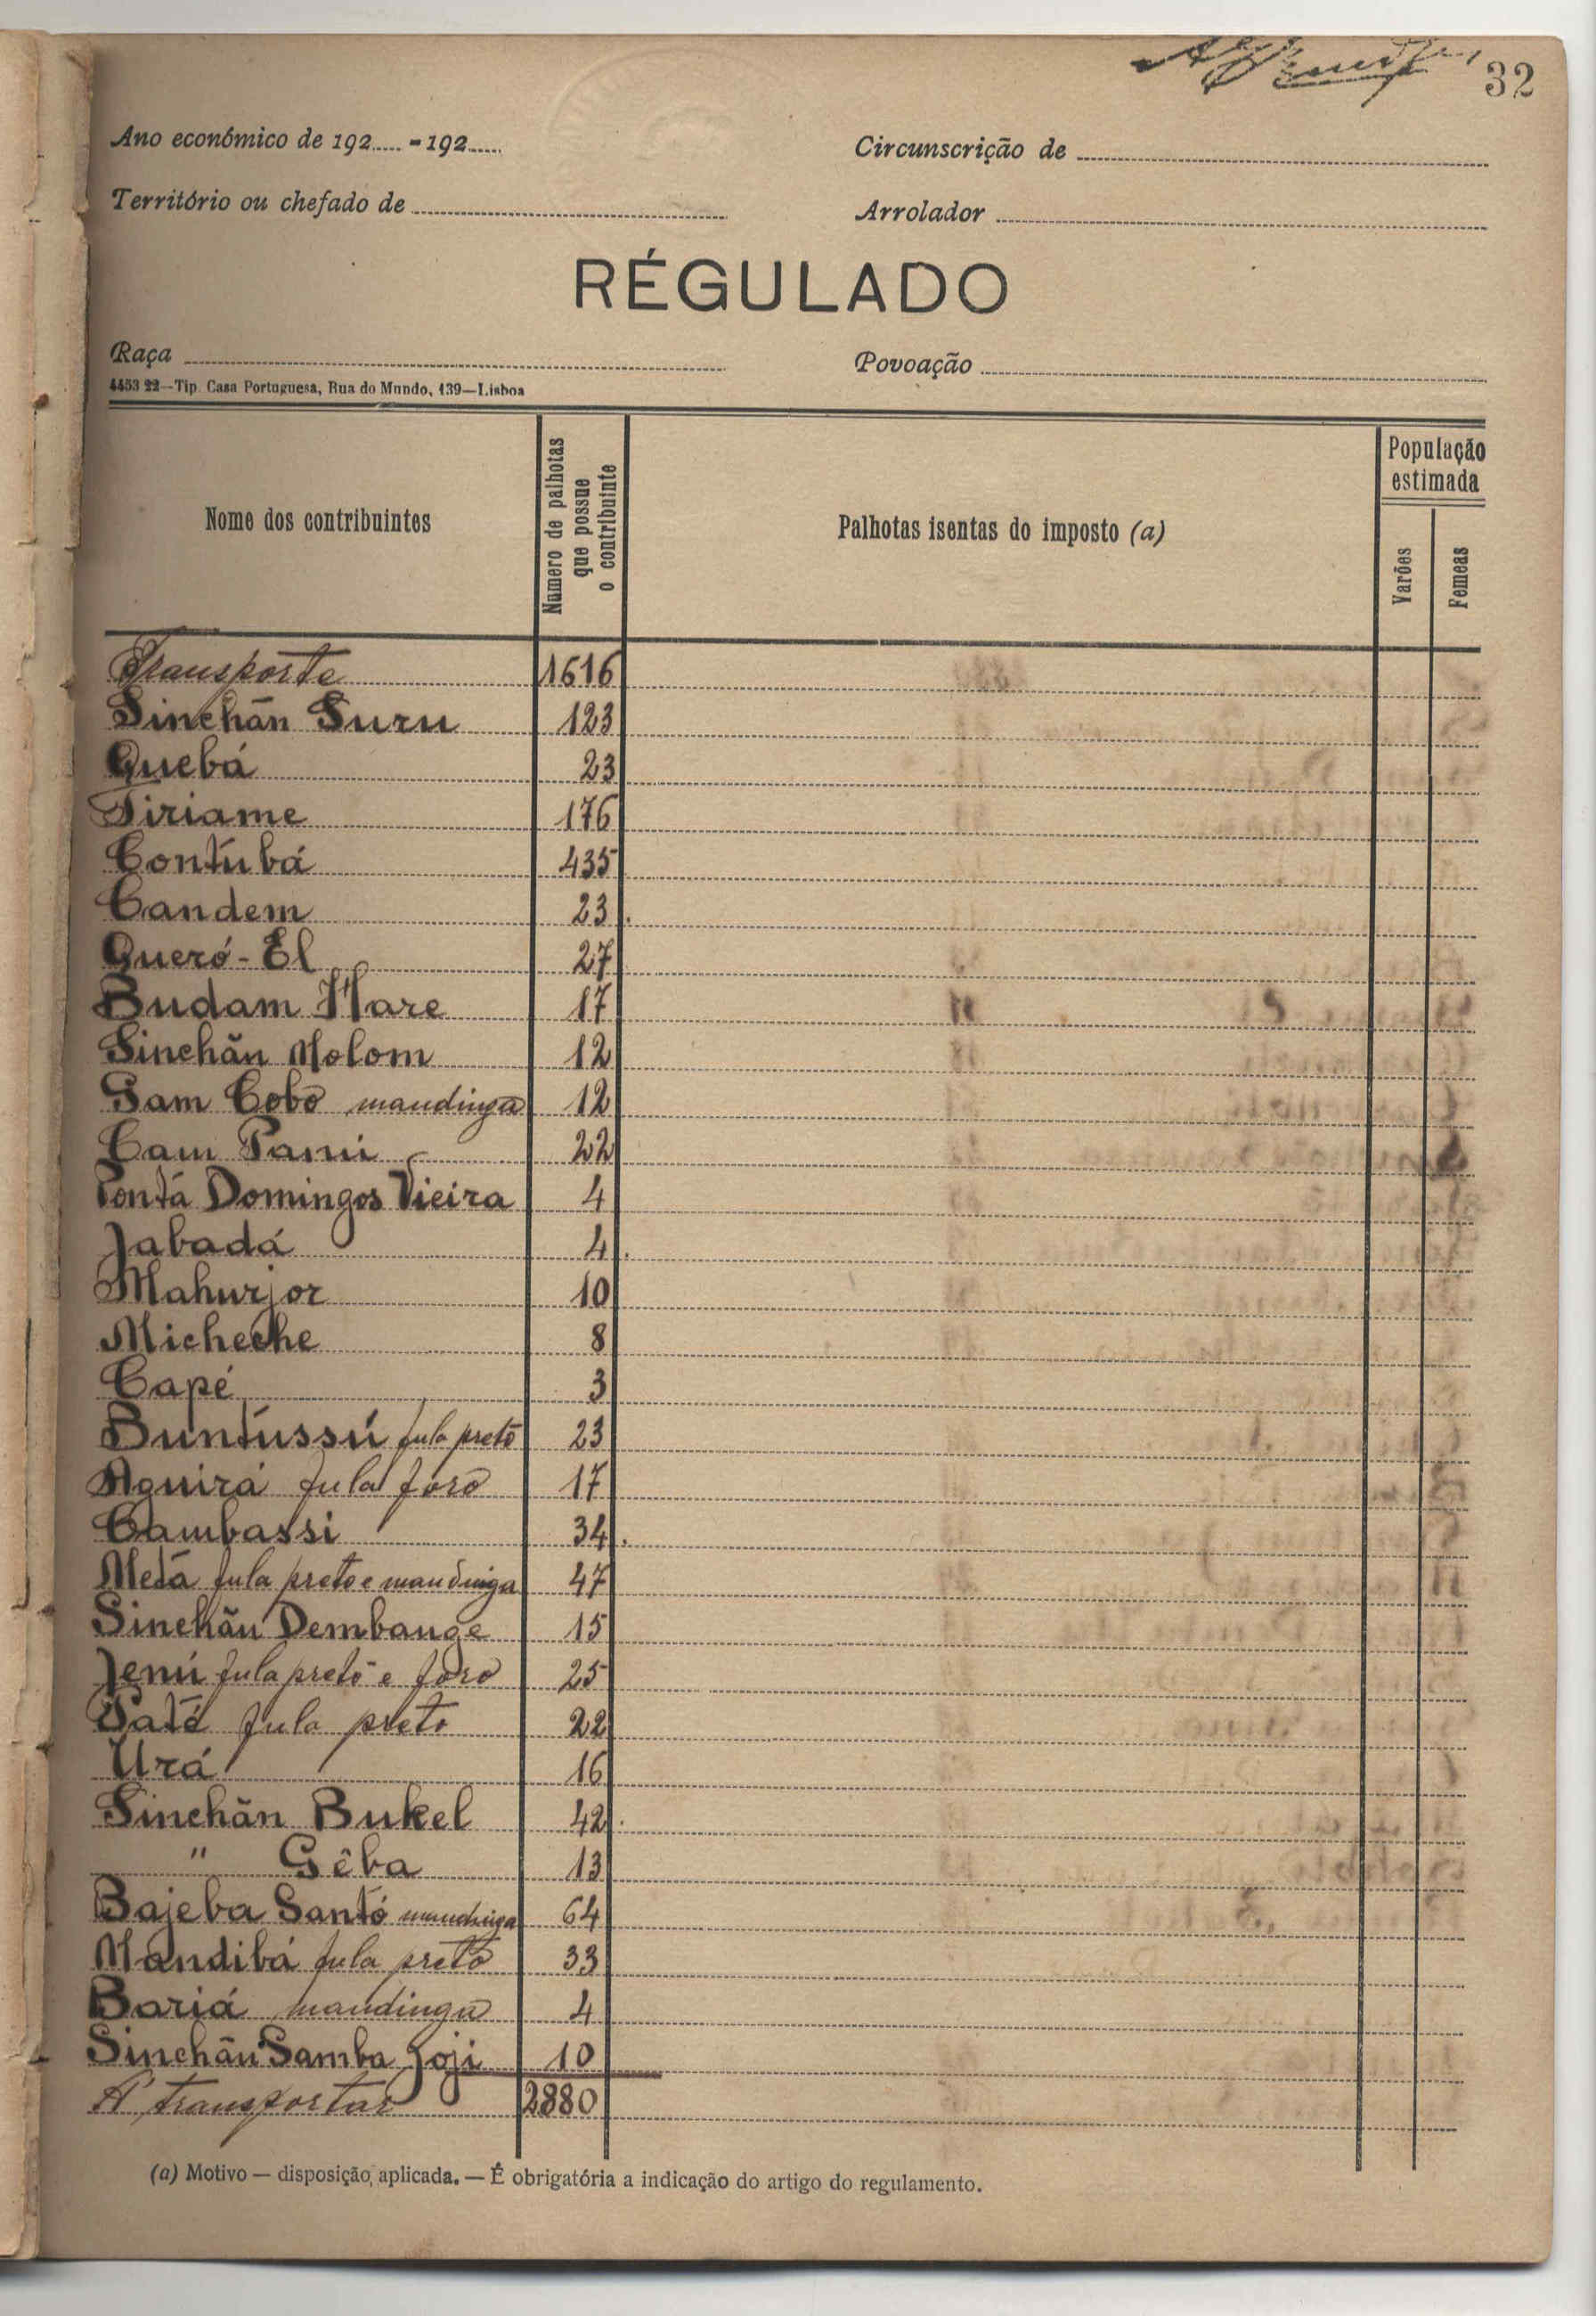 32
Ano económico de 192..... - 192.....
Circunscrição de
Território ou chefado de
Arrolador
RÉGULADO
Raça
Povoação
4453 22--Tip. Casa Portuguesa, Rua do Mundo, 139—Lisboa
Nome dos contribuintes
Número de palhotas que possue o contribuinte
Palhotas isentas do imposto (a)
População estimada
Varões
Femeas
Transporte 1616
Sinchãn Suru 123
Quebá 23
Tiriame 176
Contúbá 435
Candem 23
Queró-El 27
Budam Hare 17
Sinchãn Molom 12
Sam Cobo mandinga 12
Cam Pami 22
Pontá Domingos Vieira 4
Jabadá 4
Mahurjor 10
Micheche 8
Capé 3
Buntússú fula preto 23
Aguirá fula foro 17
Cambassi 34
Metá fula preto e mandinga 47
Sinchãn Dembange 15
Jenú fula preto e foro 25
Paté fula preto 22
Urá 16
Sinchãn Bukel 42
" Gêba 13
Bajeba Santó mandinga 64
Mandibá fula preto 33
Bariá mandinga 4
Sinchãn Samba Joji 10
A transportar 2880
(a) Motivo — disposição aplicada. — É obrigatória a indicação do artigo do regulamento.